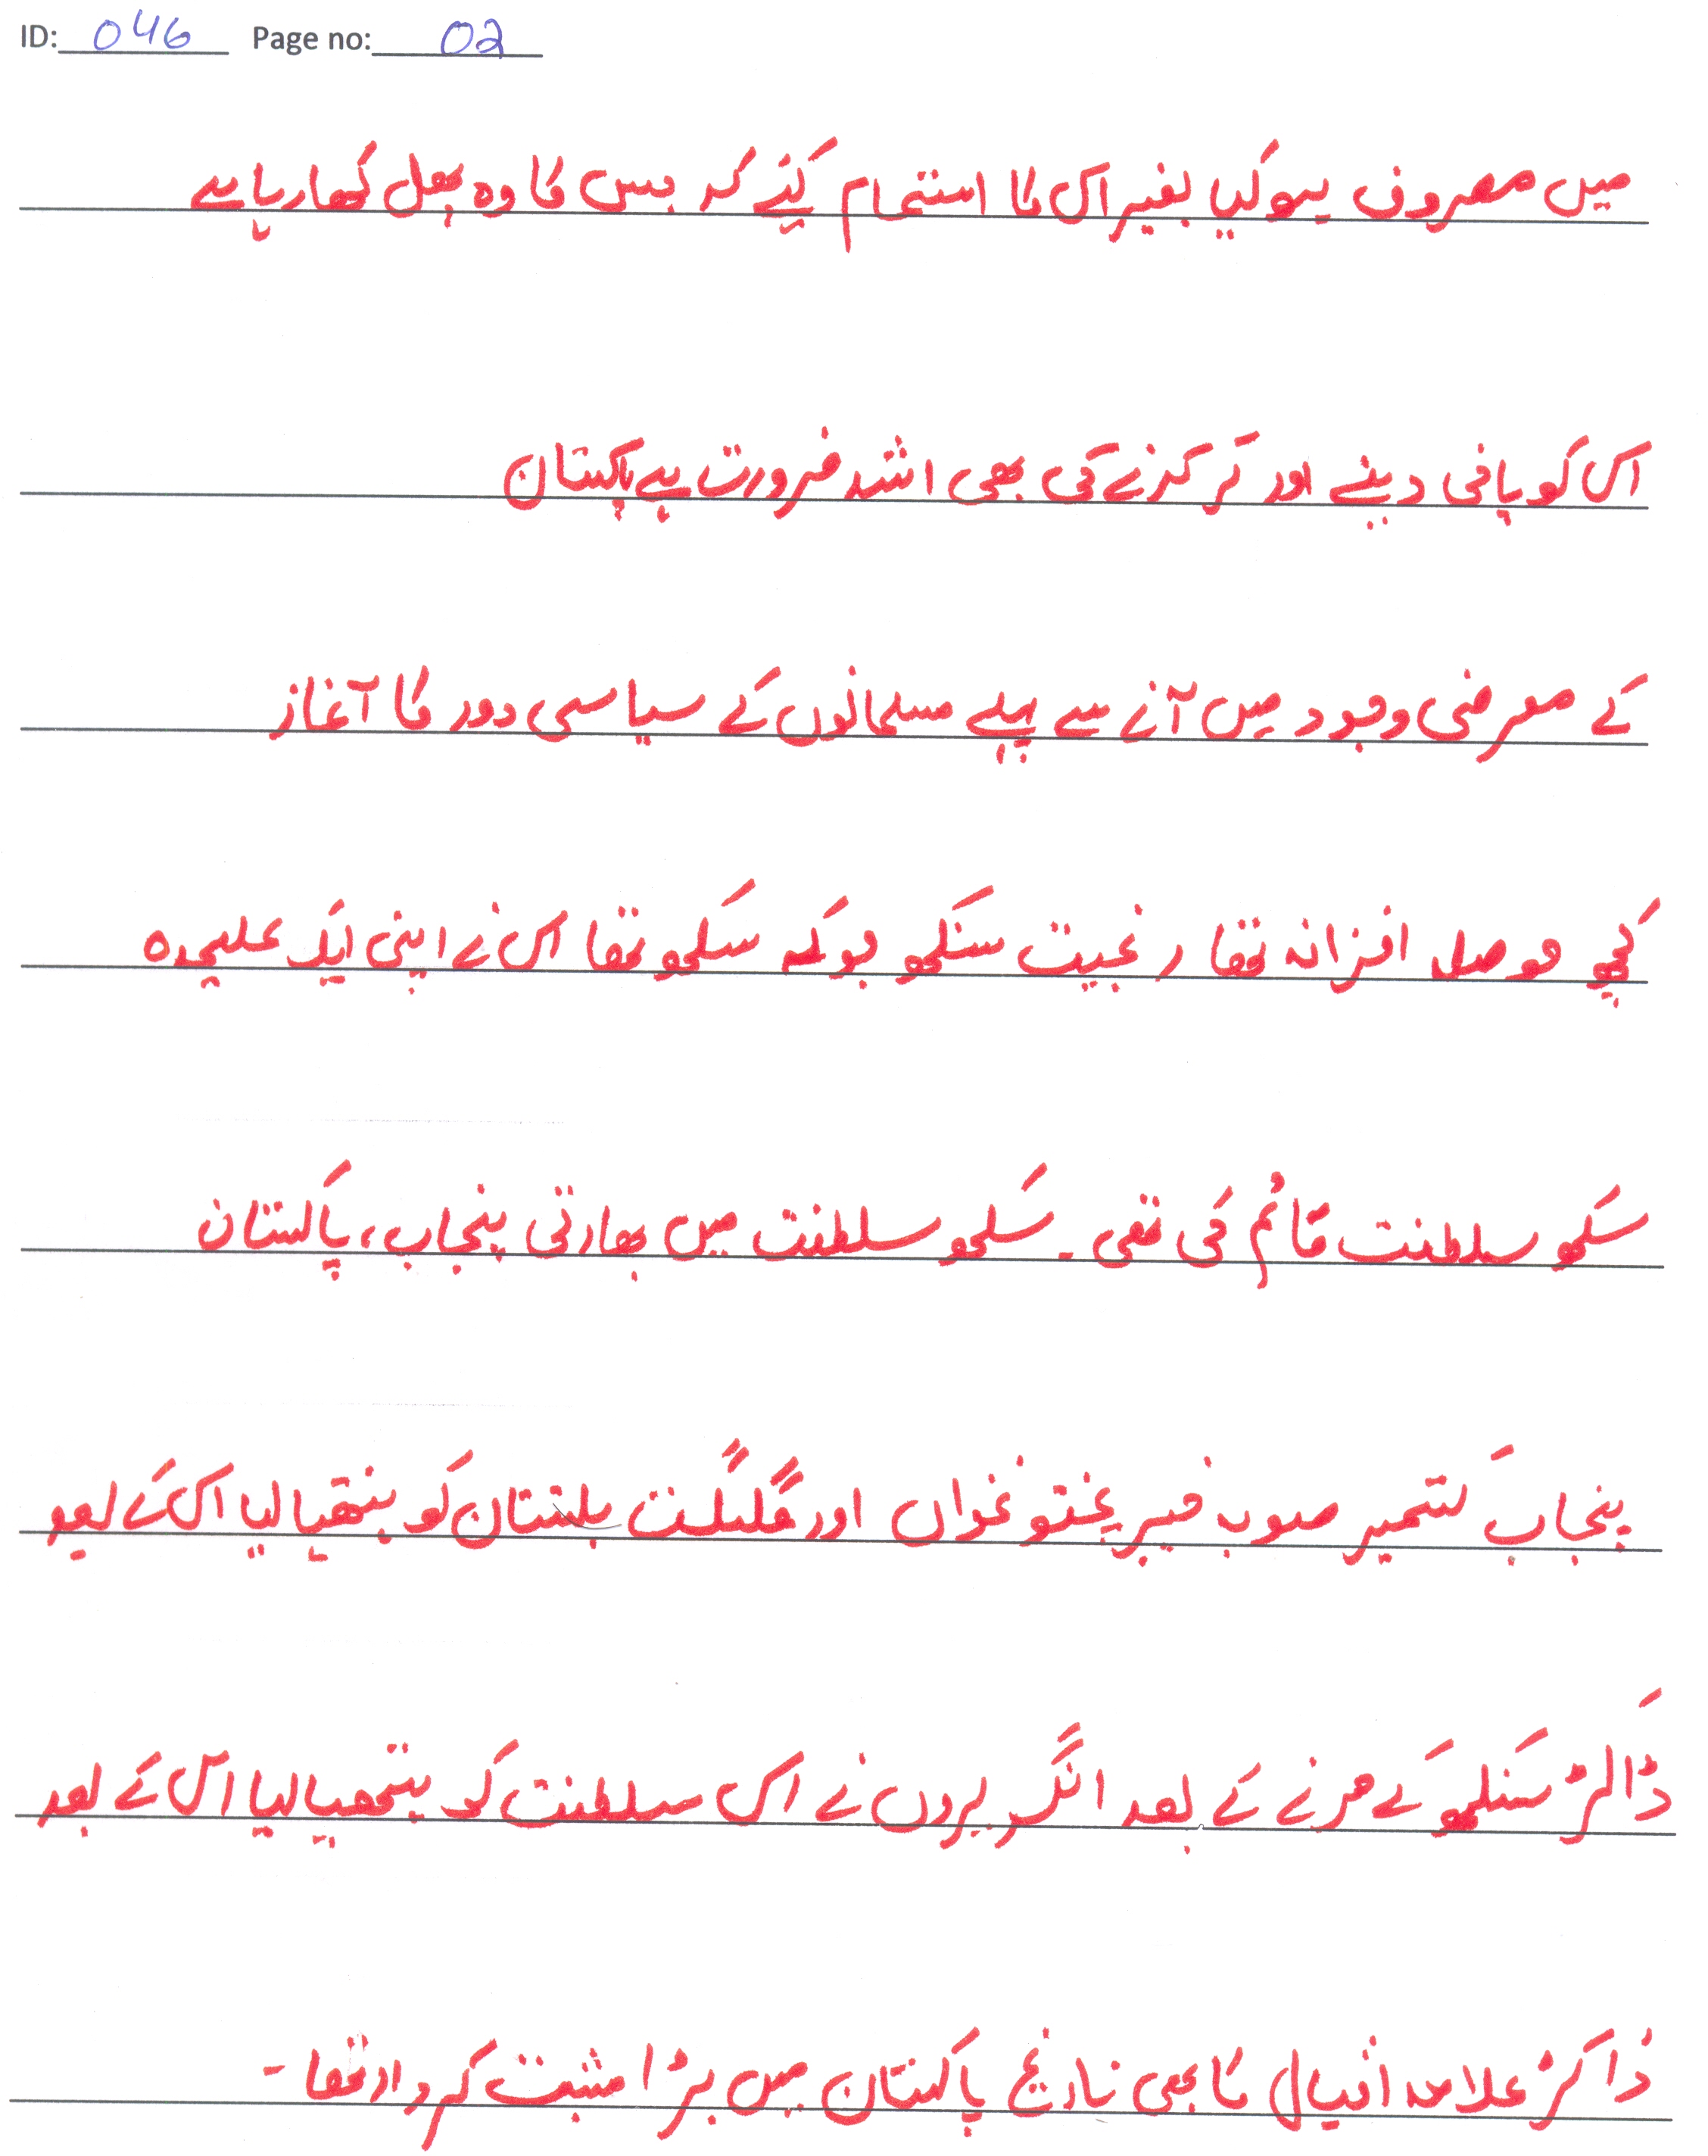 ID: 046 Page no: 02
میں مصروف ہوگیا بغیر اس کا استمام کیئے کہ جس کا وہ پھل کھا رہا ہے
اس کو پانی دینے اور تر کرنے کی بھی اشد ضرورت ہے پاکستان
کے معرضی وجود میں آنے سے پہلے مسلمانوں کے سیاسی دور کا آغاز
کچھ حوصل افزانہ تھا رنجیت سنگھ جوکہ سکھ تھا اس نے اپنی ایک علیحدہ
سکھ سلطنت قائم کی تھی۔ سکھ سلطنت میں بھارتی پنجاب، پاکستان
پنجاب کشمیر صوبہ خیبر پختو نخواں اور گلگت بلتستان کو ہتھیا لیا اس کے بعد
ڈاکڑ سنگھ کے مرنے کے بعد انگریروں نے اس سلطنت کو ہتھیا لیا اس کے بعد
ڈاکڑ علامہ اقبال کا بھی تاریخ پاکستان میں بڑا مثبت کردار تھا۔